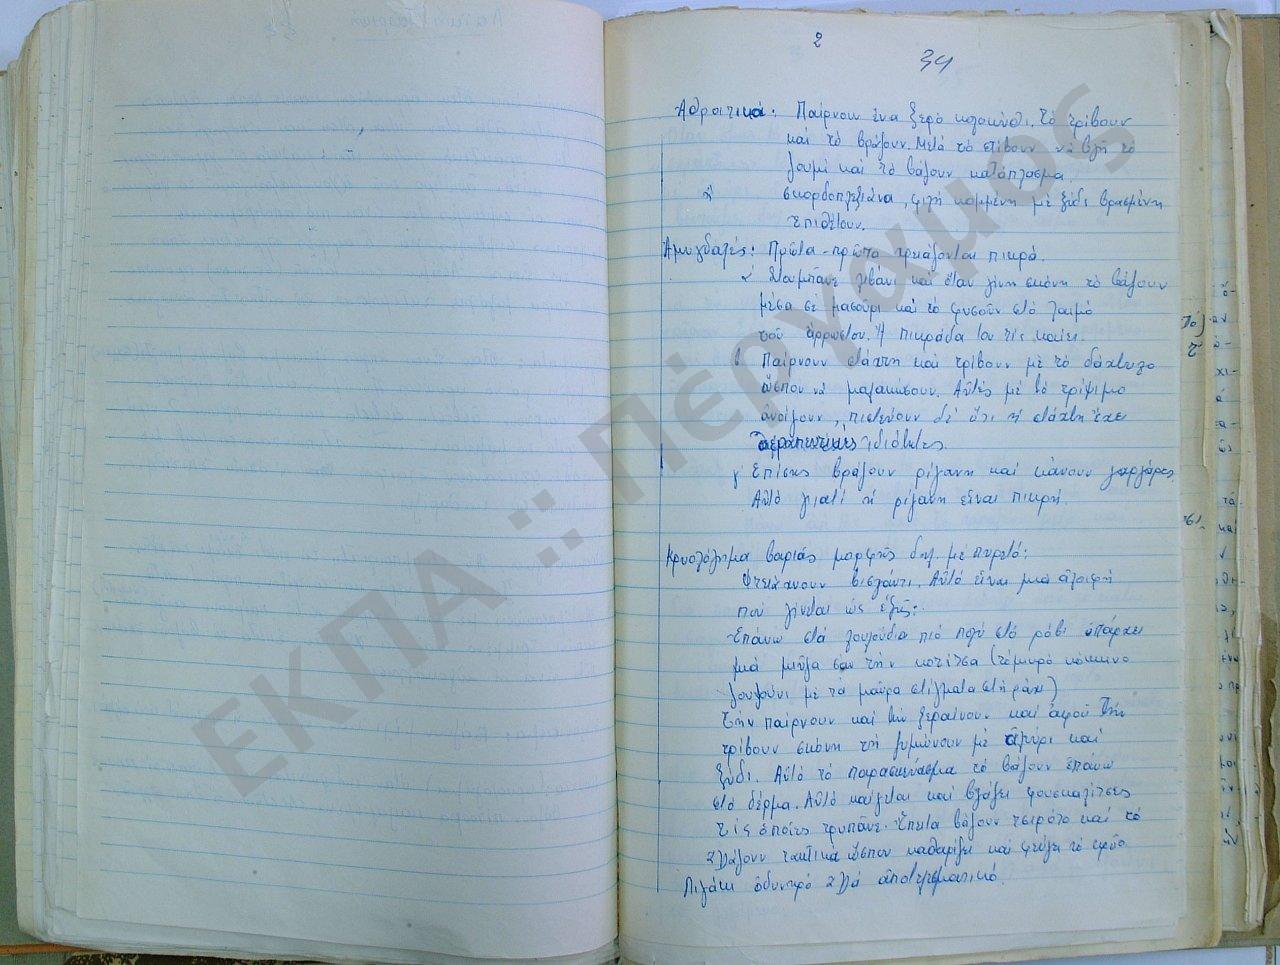 2
34
Ἀθριτικά: Παίρνουν ἕνα ξερό κολοκύθι. Τό τρίβουν
καί τό βράζουν. Μετά τό στίβουν νά βγῆ τό
ζουμί καί τό βάζουν κατάπλασμα
σκορδοπλεξιάνα, ψιλή κομμένη μέ ξύδι βρασμένη
ἐπιθέτουν.
Ἀμυγδαλές: Πρῶτα-πρῶτα πρκάζονται πικρά.
α' Στουμπᾶνε λιβάνι καί ὅταν γίνη σκόνη τό βάζουν
μέσα σέ μασούρι καί τό φυσοῦν στό λαιμό
τοῦ ἀρρώστου. Ἡ πικράδα του τίς καίει.
β Παίρνουν στάχτη καί τρίβουν μέ τό δάχτυλο
ὥσπου νά μαλακώσουν. Αὐτές μέ τό τρίψιμο
ἀνοίγουν, πιστεύουν δέ ὅτι ἡ στάχτη ἔχει
θεραπευτικές ἰδιότητες.
γ' Ἐπίσης βράζουν ρίγανη καί κάνουν γαργάρες
Αὐτό γιατί ἡ ρίγανη εἶναι πικρή.
Κρυολόγημα βαριᾶς μορφῆς δηλ. μέ πυρετό:
Φτειάχνουν βισλάντι. Αὐτό εἶναι μιά ἀλοιφή
πού γίνεται ὡς ἑξῆς:
Ἐπάνω στά λουλούδια πιό πολύ στό ρόβι ὑπάρχει
μιά μυῖγα σαν τήν κοτίτσα (τό μικρό κόκκινο
ζουζούνι μέ τά μαῦρα στίγματα στή ράχη)
Τήν παίρνουν καί τήν ξεραίνουν καί ἀφοῦ τήν
τρίβουν σκόνη τή ζυμώνουν μέ ἀλεύρι καί
ξύδι. Αὐτό τό παρασκεύασμα τό βάζουν ἐπάνω
στό δέρμα. Αὐτό καίγεται καί βγάζει φουσκαλίτσες
τίς ὁποῖες τρυπᾶνε. Ἔπειτα βάζουν τσιρότο καί τό
ἀλλάζουν τακτικά ὥσπου καθαρίζει καί φεύγει τό κρύο
Λιγάκι ὀδυνηρό ἀλλά ἀποτελεσματικό.
ΕΚΠΑ :: Πέργαμος